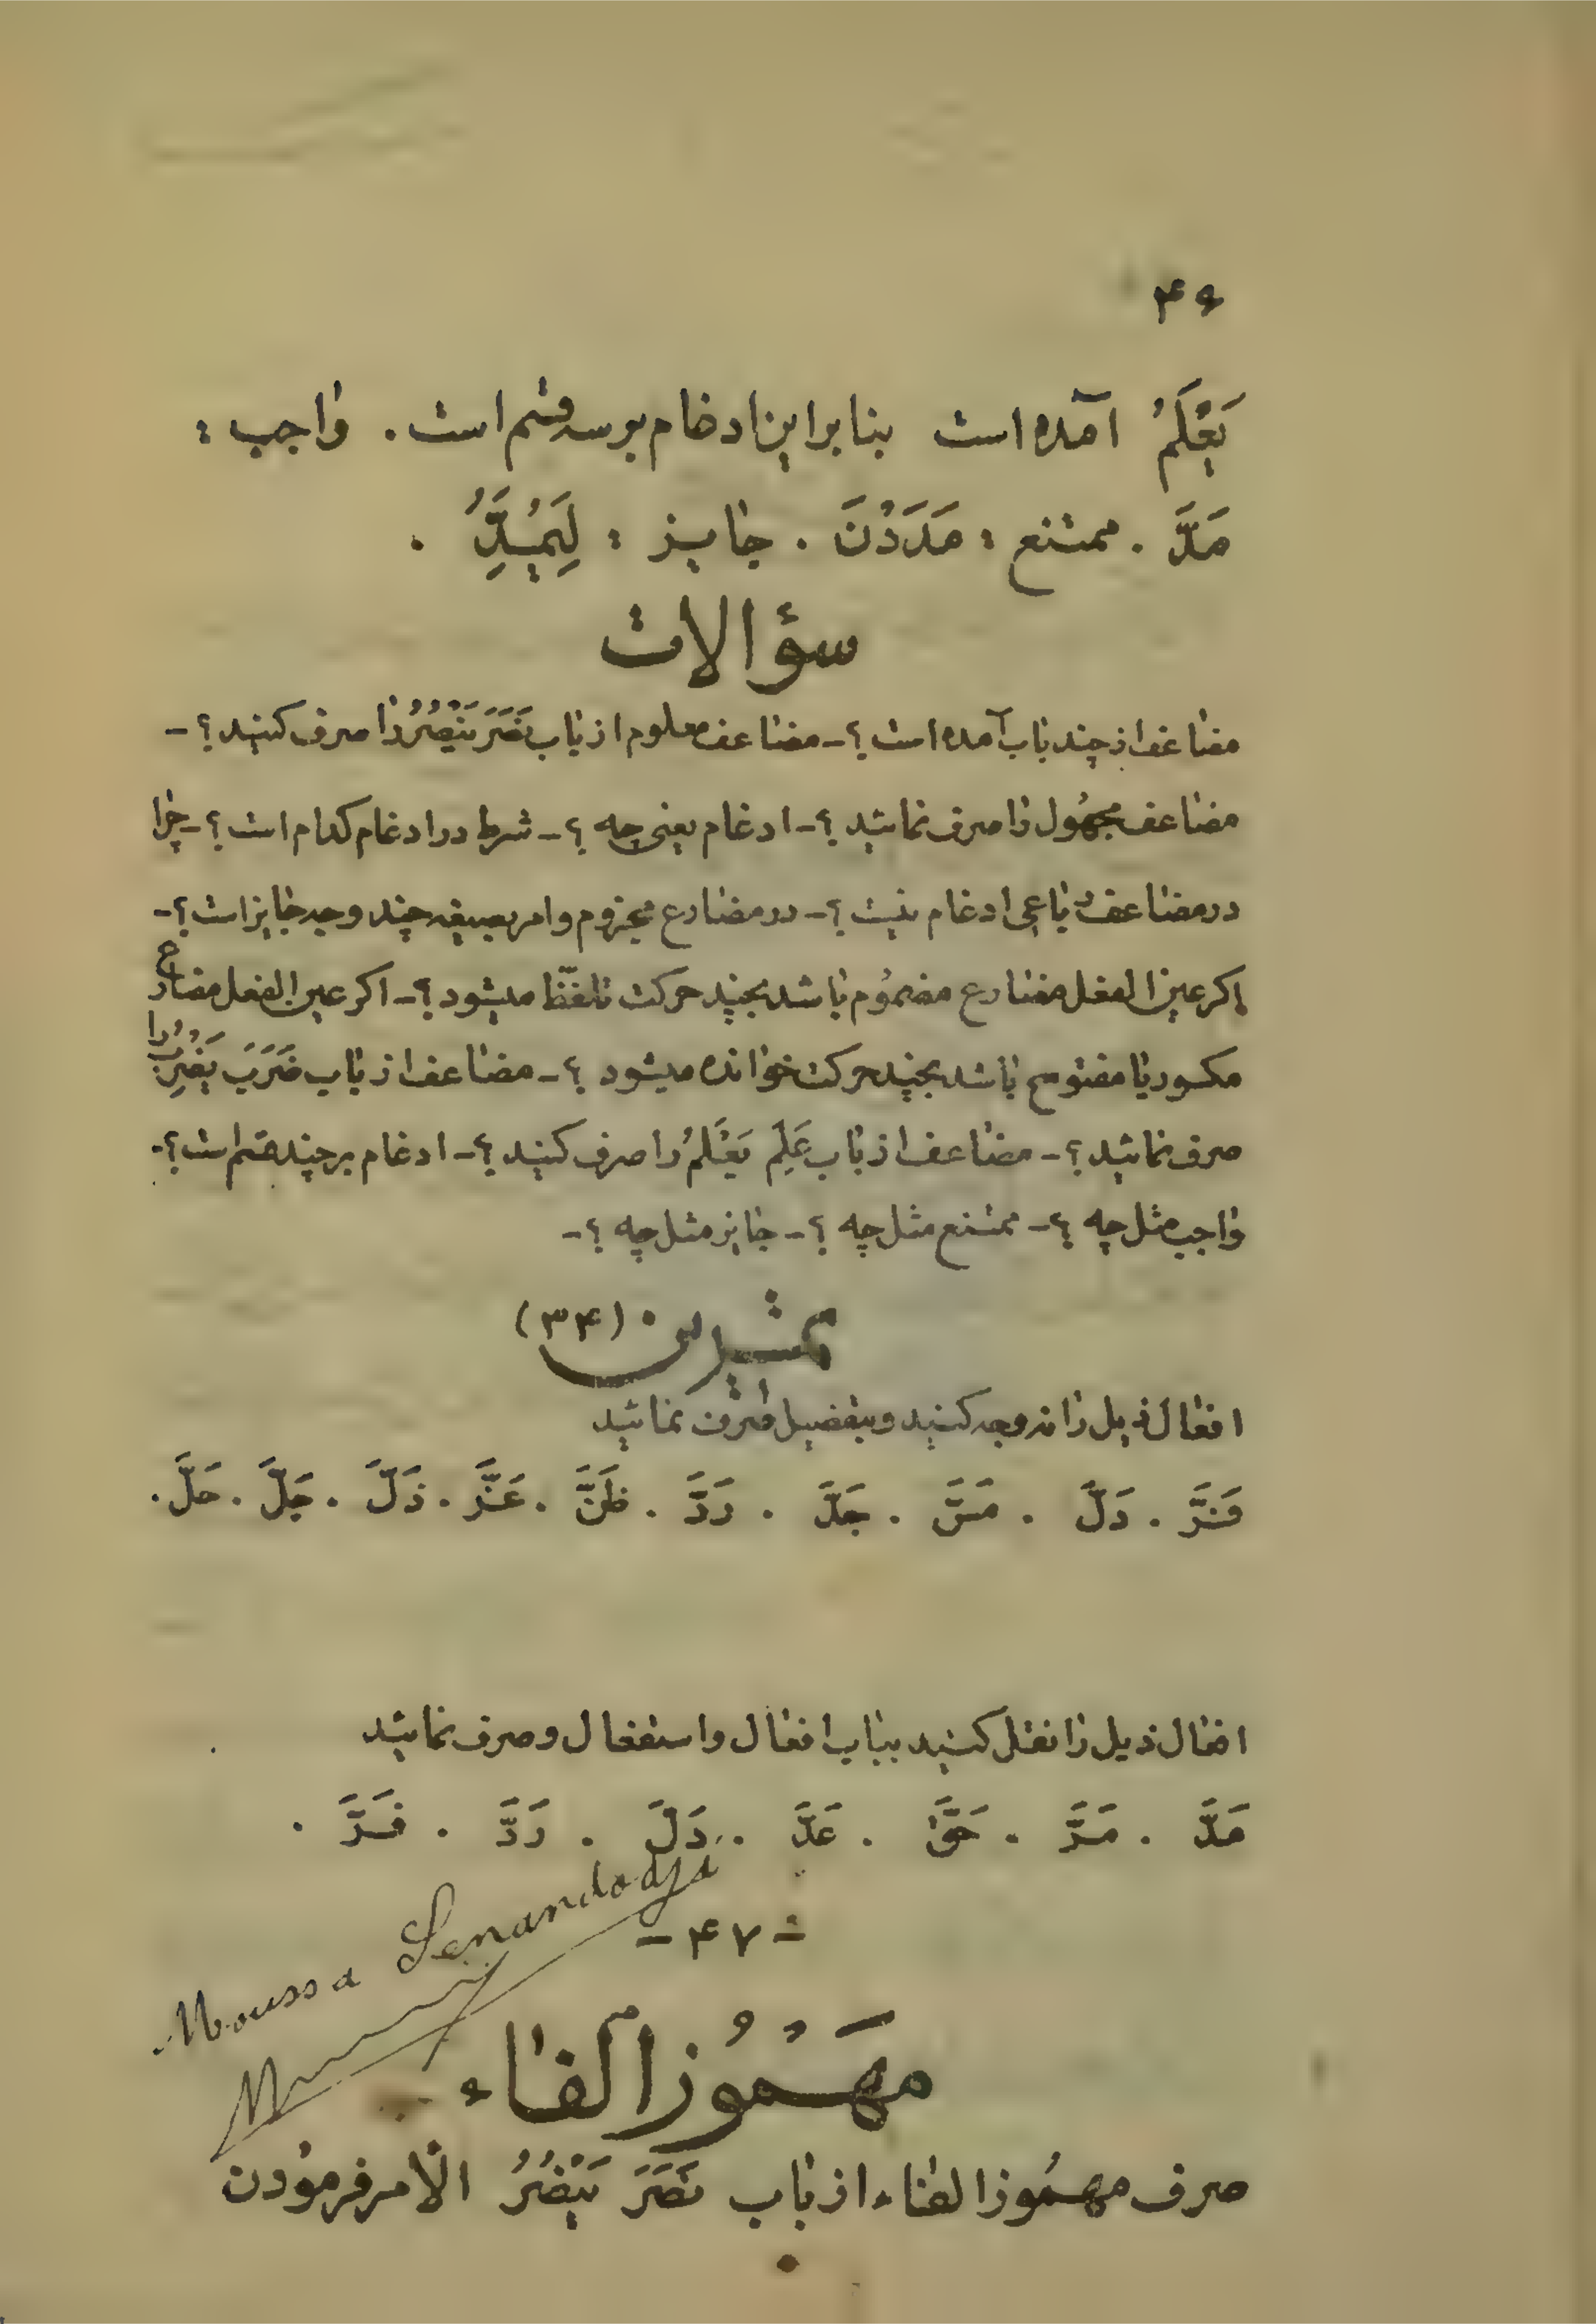 ۴۶
يَعْلَمُ آمده است بنا براین ادغام بر سه قسم است . واجب :
مَدَّ . ممتنع : مَدَدْنَ . جایز : لِيَمُدَُِّ .
سؤالات
مضاعف از چند باب آمده است ؟ - مضاعف معلوم از باب نَصَرَ يَنْصُرُ را صرف کنید ؟ -
مضاعف مجهُول را صرف نمائید ؟ - ادغام یعنی چه ؟ - شرط در ادغام کدام است ؟ - چرا
در مضاعف رباعی ادغام نیست ؟ - در مضارع مجزوم و امر بصیغه چند وجه جایز است ؟ -
اگر عین الفعل مضارع مضمُوم باشد بچند حرکت تلفّظ میشود ؟ - اگر عین الفعل مضارع
مکسور یا مفتوح باشد بچند حرکت خوانده میشود ؟ - مضاعف از باب ضَرَبَ يَضْرِبُ را
صرف نمائید ؟ - مضاعف از باب عَلِمَ يَعْلَمُ را صرف کنید ؟ - ادغام بر چند قسم است ؟ -
واجب مثل چه ؟ - ممتنع مثل چه ؟ - جایز مثل چه ؟ -
تمرین (۳۴)
افعال ذیل را نه وجه کنید و بتفصیل صرف نمائید
فَرَّ . دَلَّ . مَسَّ . جَدَّ . رَدَّ . ظَنَّ . عَزَّ . ذَلَّ . جَلَّ . حَلَّ .
افعال ذیل را نقل کنید بباب افعال و استفعال و صرف نمائید
مَدَّ . مَرَّ . حَقَّ . عَدَّ . دَلَّ . رَدَّ . فَرَّ .
Moussa
- ۴۷ -
مهمُوز الفاء
صرف مهمُوز الفاء از باب نَصَرَ يَنْصُرُ الْأمر فرمُودن